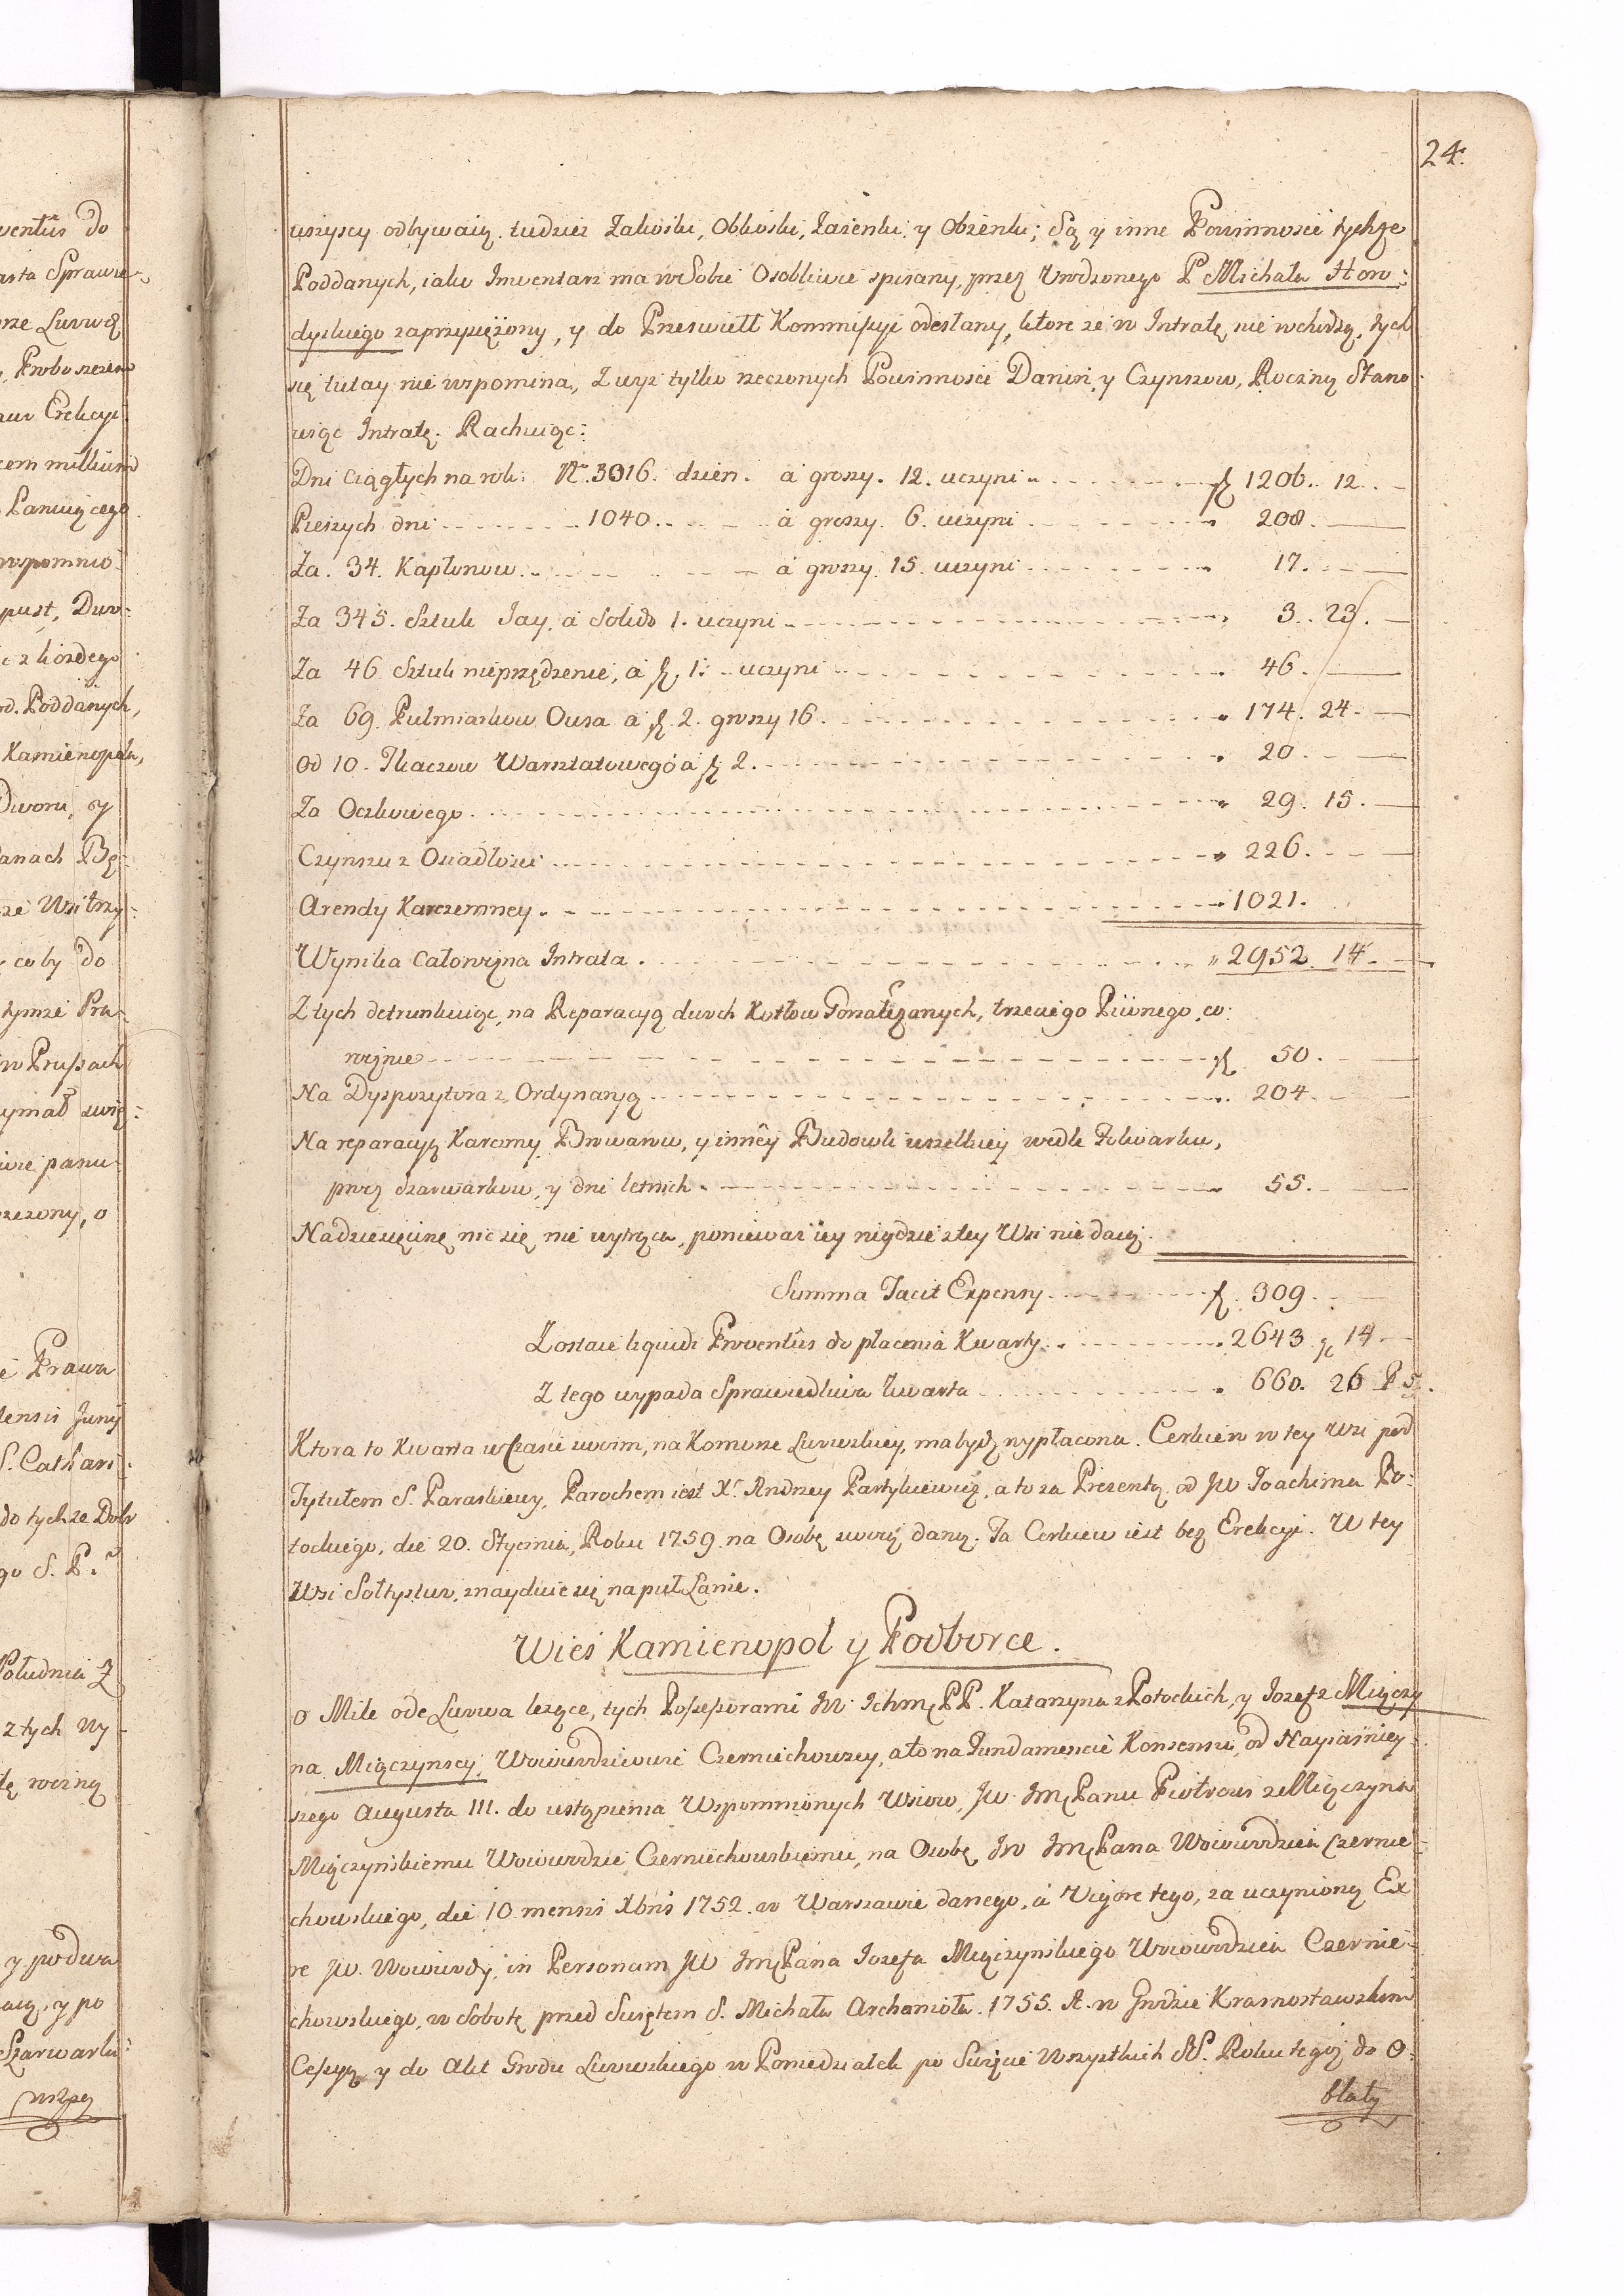 24.
wszyscy odbywaią. tudziesz Zakoski, Obkoski, Zażenki y Obżenki; Są y inne Powinnosci tychże
Poddanych, iako Inwentarz ma w Sobie Osobliwie spisany, przez Urodzonego P Michała Horo:
dyskiego zaprzysiężony, y do Przeswiett Kommissyi odesłany, ktore że w Intratę nie wchodzą, tych
się tutay nie wspomina, Z wyż tylko rzeczonych Powinnosci Danin, y Czynszow, Roczną Stano
wiąc Intratę. Rachuiąc:
Dni Ciągłych na rok: No 3016. dzien. á groszy. 12. uczyni f 1206. 12.
Pieszych dni 1040. á groszy 6. uczyni 208.
Za. 34. Kapłonow á groszy. 15. uczyni 17.
Za 345. Sztuk Jay, á Solido 1. uczyni 3. 23.
Za 46 Sztuk nieprzędzenie, á f. 1: uczyni 46.
Za 69. Pułmiarkow Owsa á f 2. groszy 16. 174. 24.
Od 10. Tkaczow Warsztatowego á f 2. 20
Za Oczkowego 29. 15.
Czynszu z Osiadłosci 226.
Arendy Karczemney 1021.
Wynika Całoroczna Intrata. 2952. 14.
Z tych detrunkuiąc, na Reparacyą dwoch Kotłow Gorzałczanych, trzeciego Piwnego, co:
rocznie f 50.
Na Dyspozytora z Ordynaryą 204.
Na reparacyą Karczmy Browaru, y inney Budowli wszelkiey wedle Folwarku,
przez Szarwarkow, y dni letnich 55.
Na dziesięcinę nic się nie wytrąca, ponieważ iey nigdzie z tey Wsi nie daią.
Summa Facit Expensy f. 309.
Zostaie liquidi Proventûs do płacenia Kwarty 2643 g 14
Z tego wypada Sprawiedliwa kwarta 660. 26 P 5.
Ktora to Kwarta w Czasie swoim, na Komorze Lwowskiey, ma bydź wypłacona. Cerkiew w tey Wsi pod
Tytułem S. Paraskiewy, Parochem iest X. Andrzey Partykiewicz, a to za Prezentą od JW Joachima Po:
tockiego, die 20. Stycznia, Roku 1759 na Osobę swoią daną. Ta Cerkiew iest bez Erekcyi. W tey
Wsi Sołtystwo, znayduie się na puł Łanie.
Wies Kamienopol y Podborce.
o Mile ode Lwowa leżące, tych Possessorami JW. Ichmę PP. Katarzyna z Potockich, y Jozef z Miączy
na Miączynscy, Woiewodziowie Czerniechowscy, a to na Fundamencie Konsensu, od Nayiasniey
szego Augusta III. do ustąpienia Wspomnionych Wsiow, JW Jmę Panu Piotrowi z Miączyna
Miączynskiemu Woiewodzie Czerniechowskiemu, na Osobę JW Jmę Pana Woiewodzica Czernie:
chowskiego, die 10 mensis Xbris 1752. w Warszawie danego, á Vigore tego, za uczynioną Ex
re JW. Woiewody, in Personam JW Jmę Pana Jozefa Miączynskiego Woiewodzica Czernie:
chowskiego, w Sobotę przed Swiętem S. Michała Archanioła. 1755. A. w Grodzie Krasnostawskim
Cessyą, y do Akt Grodu Lwowskiego w Poniedziałek po Swięcie Wszystkich SS. Roku tegoż do O:
blaty